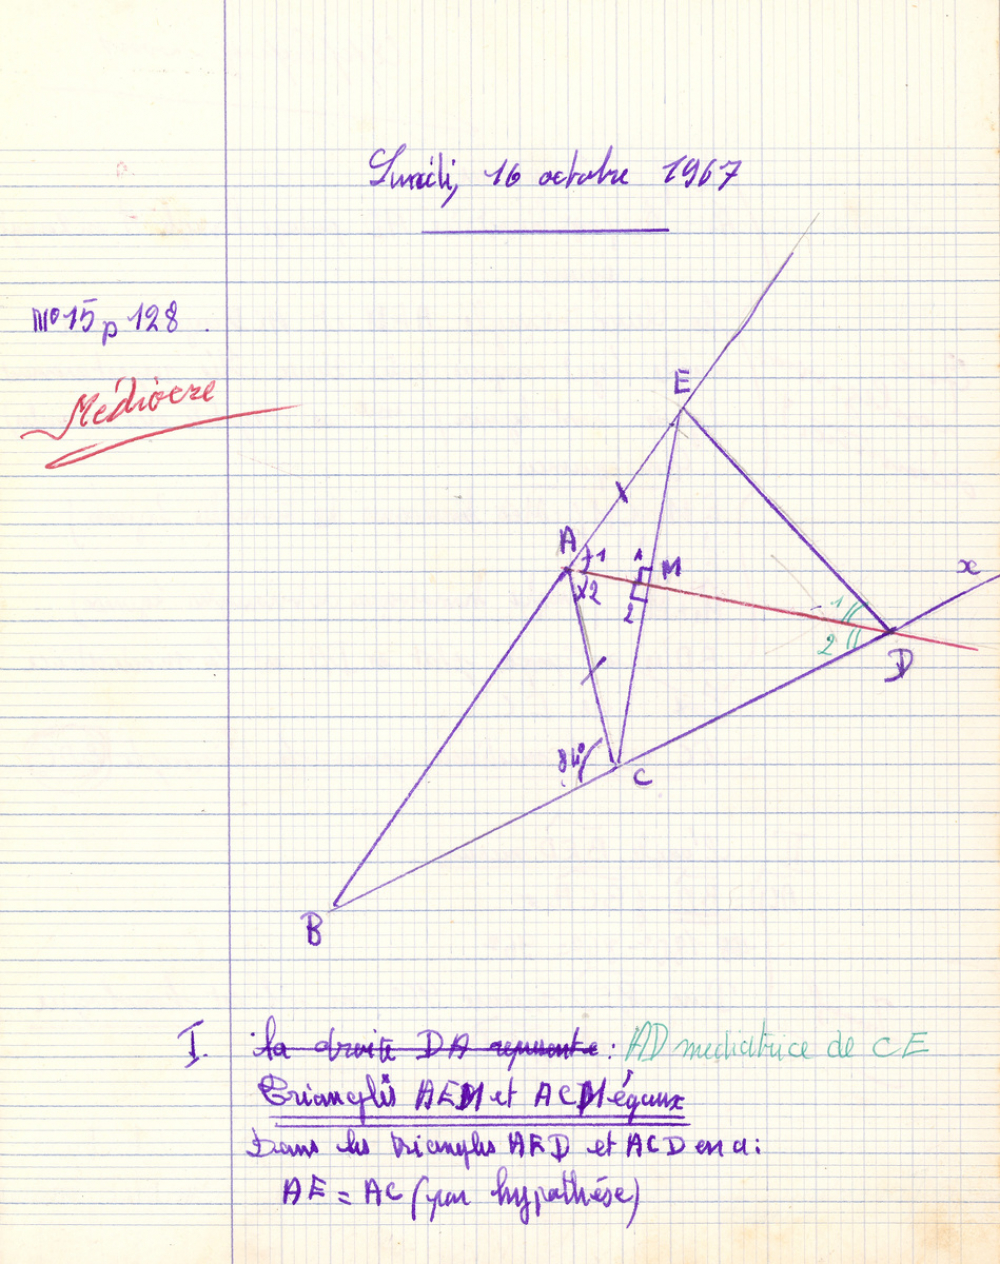 Lundi, 16 octobre 1967
N° 15 p 128.
Médiocre
E
A
1
x
1
M
2
2
1
2
D
84°
C
B
I. la droite DA représente : AD mediatrice de CE
Triangles AEM et ACM égaux
Dans les triangles AED et ACD on a :
AE = AC (par hypothèse)